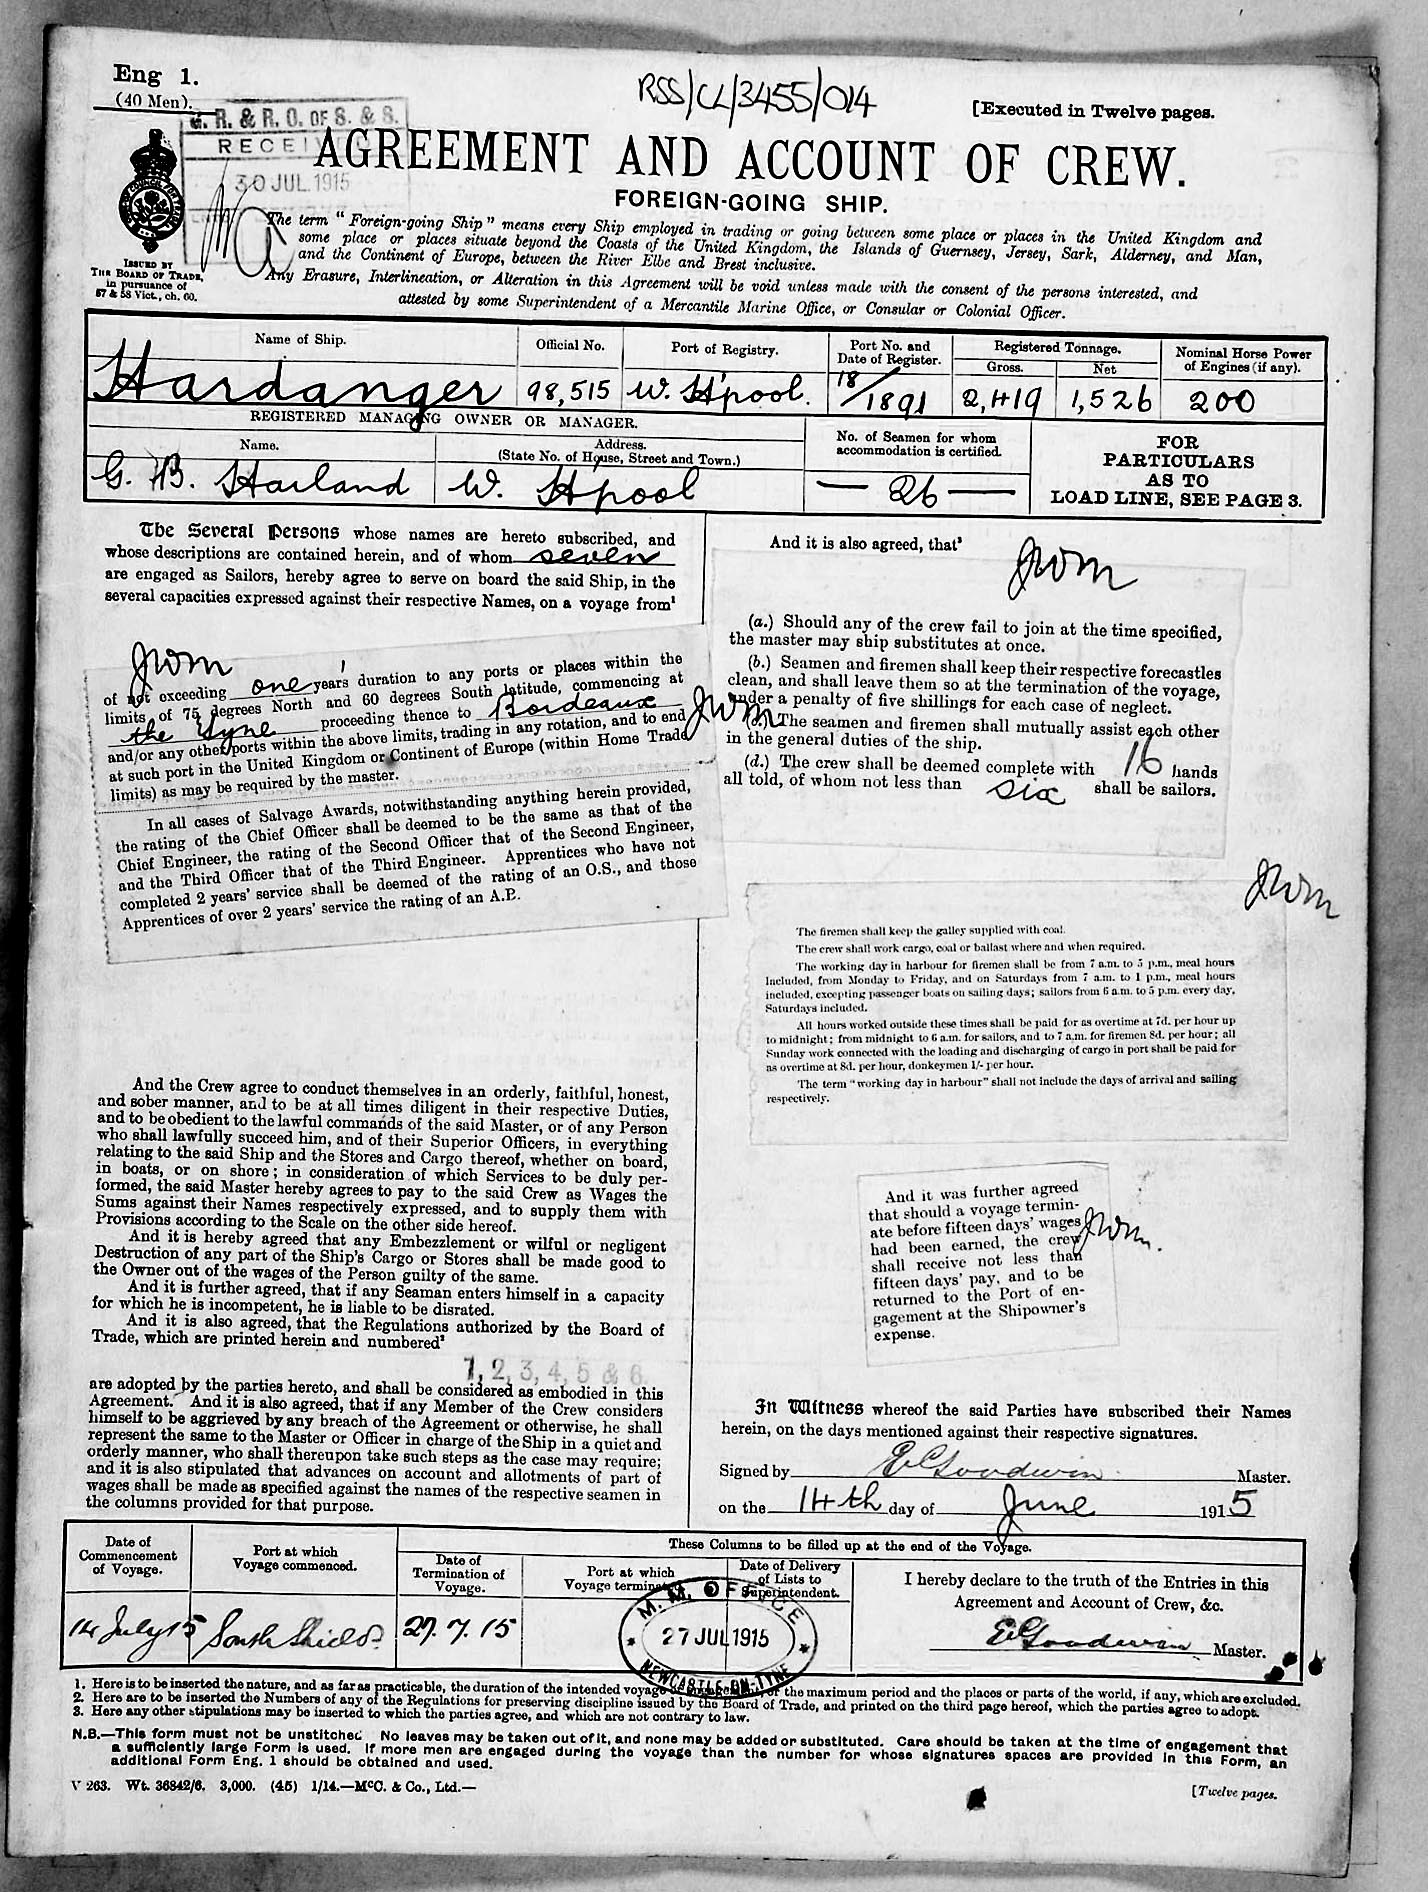 Eng 1.
(40 Men).
RSS/CL/3455/014
[Executed in Twelve pages.
G. R. & R. O. OF S. & S.
RECEIVED
30 JUL 1915
AGREEMENT AND ACCOUNT OF CREW.
FOREIGN-GOING SHIP.
ISSUED BY
THE BOARD OF TRADE,
in pursuance of
57 & 58 Vict., ch. 60.
The term "Foreign-going Ship" means every Ship employed in trading or going between some place or places in the United Kingdom and
some place or places situate beyond the Coasts of the United Kingdom, the Islands of Guernsey, Jersey, Sark, Alderney, and Man,
and the Continent of Europe, between the River Elbe and Brest inclusive.
Any Erasure, Interlineation, or Alteration in this Agreement will be void unless made with the consent of the persons interested, and
attested by some Superintendent of a Mercantile Marine Office, or Consular or Colonial Officer.
Name of Ship.
Official No.
Port of Registry.
Port No. and
Date of Register.
Registered Tonnage.
Gross.
Net
Nominal Horse Power
of Engines (if any).
Hardanger
98,515
W. H'pool.
18/1891
2,419
1,526
200
REGISTERED MANAGING OWNER OR MANAGER.
Name.
Address.
(State No. of House, Street and Town.)
No. of Seamen for whom
accommodation is certified.
FOR
PARTICULARS
AS TO
LOAD LINE, SEE PAGE 3.
G. B. Harland
W. H'pool
— 26 —
The Several Persons whose names are hereto subscribed, and
whose descriptions are contained herein, and of whom seven
are engaged as Sailors, hereby agree to serve on board the said Ship, in the
several capacities expressed against their respective Names, on a voyage from¹
JWM
of not exceeding one years' duration to any ports or places within the
limits of 75 degrees North and 60 degrees South latitude, commencing at
the Tyne proceeding thence to Bordeaux
and/or any other ports within the above limits, trading in any rotation, and to end
at such port in the United Kingdom or Continent of Europe (within Home Trade
limits) as may be required by the master.
In all cases of Salvage Awards, notwithstanding anything herein provided,
the rating of the Chief Officer shall be deemed to be the same as that of the
Chief Engineer, the rating of the Second Officer that of the Second Engineer,
and the Third Officer that of the Third Engineer. Apprentices who have not
completed 2 years' service shall be deemed of the rating of an O.S., and those
Apprentices of over 2 years' service the rating of an A.B.
And the Crew agree to conduct themselves in an orderly, faithful, honest,
and sober manner, and to be at all times diligent in their respective Duties,
and to be obedient to the lawful commands of the said Master, or of any Person
who shall lawfully succeed him, and of their Superior Officers, in everything
relating to the said Ship and the Stores and Cargo thereof, whether on board,
in boats, or on shore; in consideration of which Services to be duly per-
formed, the said Master hereby agrees to pay to the said Crew as Wages the
Sums against their Names respectively expressed, and to supply them with
Provisions according to the Scale on the other side hereof.
And it is hereby agreed that any Embezzlement or wilful or negligent
Destruction of any part of the Ship's Cargo or Stores shall be made good to
the Owner out of the wages of the Person guilty of the same.
And it is further agreed, that if any Seaman enters himself in a capacity
for which he is incompetent, he is liable to be disrated.
And it is also agreed, that the Regulations authorized by the Board of
Trade, which are printed herein and numbered²
1, 2, 3, 4, 5 & 6.
are adopted by the parties hereto, and shall be considered as embodied in this
Agreement. And it is also agreed, that if any Member of the Crew considers
himself to be aggrieved by any breach of the Agreement or otherwise, he shall
represent the same to the Master or Officer in charge of the Ship in a quiet and
orderly manner, who shall thereupon take such steps as the case may require;
and it is also stipulated that advances on account and allotments of part of
wages shall be made as specified against the names of the respective seamen in
the columns provided for that purpose.
And it is also agreed, that³
JWM
(a.) Should any of the crew fail to join at the time specified,
the master may ship substitutes at once.
(b.) Seamen and firemen shall keep their respective forecastles
clean, and shall leave them so at the termination of the voyage,
under a penalty of five shillings for each case of neglect.
JWM
(c.) The seamen and firemen shall mutually assist each other
in the general duties of the ship.
(d.) The crew shall be deemed complete with 16 hands
all told, of whom not less than six shall be sailors.
JWM
The firemen shall keep the galley supplied with coal.
The crew shall work cargo, coal or ballast where and when required.
The working day in harbour for firemen shall be from 7 a.m. to 5 p.m., meal hours
included, from Monday to Friday, and on Saturdays from 7 a.m. to 1 p.m., meal hours
included, excepting passenger boats on sailing days; sailors from 6 a.m. to 5 p.m. every day,
Saturdays included.
All hours worked outside these times shall be paid for as overtime at 7d. per hour up
to midnight; from midnight to 6 a.m. for sailors, and to 7 a.m. for firemen 8d. per hour; all
Sunday work connected with the loading and discharging of cargo in port shall be paid for
as overtime at 8d. per hour, donkeymen 1/- per hour.
The term "working day in harbour" shall not include the days of arrival and sailing
respectively.
And it was further agreed
that should a voyage termin-
ate before fifteen days' wages
had been earned, the crew
shall receive not less than
fifteen days' pay, and to be
returned to the Port of en-
gagement at the Shipowner's
expense.
JWM.
In Witness whereof the said Parties have subscribed their Names
herein, on the days mentioned against their respective signatures.
Signed by E Goodwin Master.
on the 14th day of June 1915
Date of
Commencement
of Voyage.
Port at which
Voyage commenced.
These Columns to be filled up at the end of the Voyage.
Date of
Termination of
Voyage.
Port at which
Voyage terminated.
Date of Delivery
of Lists to
Superintendent.
I hereby declare to the truth of the Entries in this
Agreement and Account of Crew, &c.
14 July 15
South Shields.
27. 7. 15
M. M. OFFICE
27 JUL 1915
NEWCASTLE-ON-TYNE
E Goodwin Master.
1. Here is to be inserted the nature, and as far as practicable, the duration of the intended voyage or engagement, or the maximum period and the places or parts of the world, if any, which are excluded.
2. Here are to be inserted the Numbers of any of the Regulations for preserving discipline issued by the Board of Trade, and printed on the third page hereof, which the parties agree to adopt.
3. Here any other stipulations may be inserted to which the parties agree, and which are not contrary to law.
N.B.—This form must not be unstitched. No leaves may be taken out of it, and none may be added or substituted. Care should be taken at the time of engagement that
a sufficiently large Form is used. If more men are engaged during the voyage than the number for whose signatures spaces are provided in this Form, an
additional Form Eng. 1 should be obtained and used.
V 263. Wt. 36842/6. 3,000. (45) 1/14.—McC. & Co., Ltd.—
[Twelve pages.